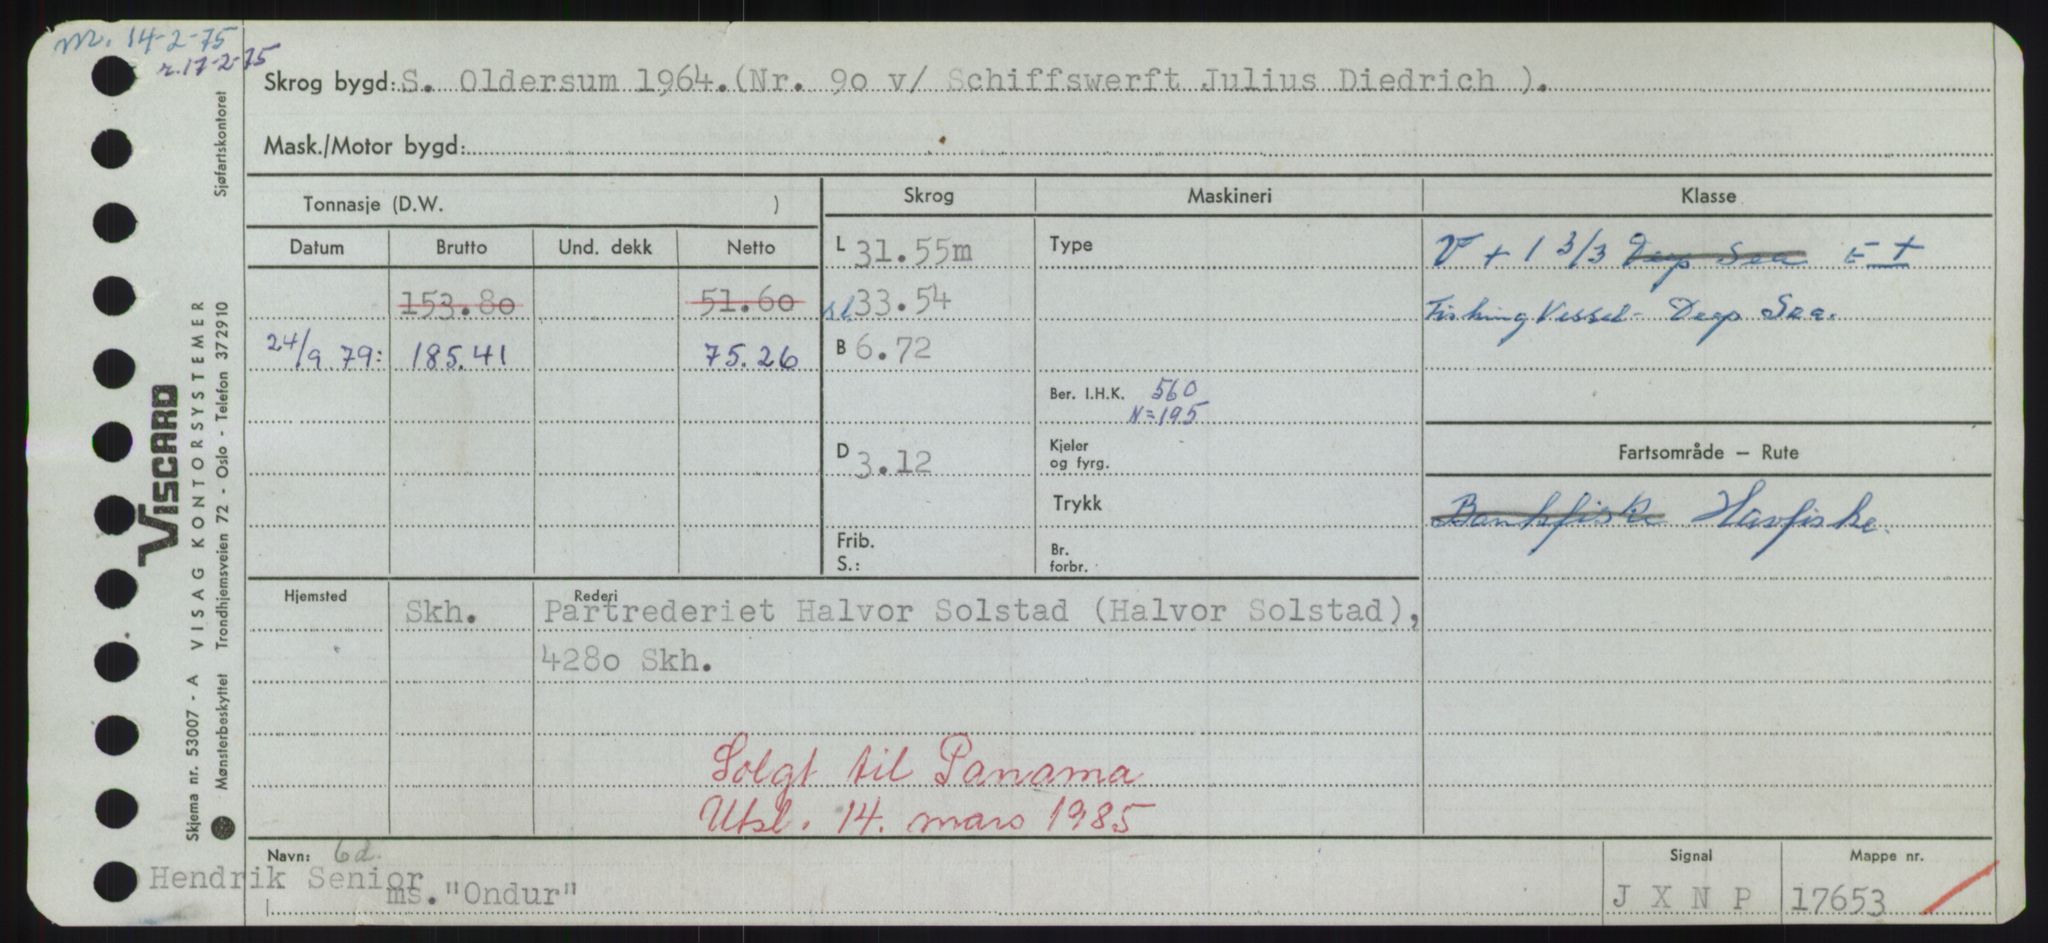 m. 14-2-75
r. 17-2-75
Skrog bygd: S. Oldersum 1964.(Nr. 9o v/ Schiffswerft Julius Diedrich ).
Mask./Motor bygd:
Tonnasje (D.W. )
Skrog
Maskineri
Klasse
Datum Brutto Und. dekk Netto
L 31.55m
Type
V + 1 3/3 Deep Sea E +
153.8o 51.6o
sl. 33.54
Fishing Vessel - Deep Sea.
24/9 79: 185.41 75.26
B 6.72
Ber. I.H.K. 560
N=195
D 3.12
Kjeler
og fyrg.
Fartsområde – Rute
Trykk
Bankfiske Havfiske.
Frib.
S.:
Br.
forbr.
Hjemsted Skh.
Rederi
Partrederiet Halvor Solstad (Halvor Solstad),
428o Skh.
Solgt til Panama
Utsl. 14. mars 1985
Navn: 6d.
Hendrik Senior
ms. "Ondur"
Signal
J X N P
Mappe nr.
17653
VISCARD
Skjema nr. 53007 - A VISAG KONTORSYSTEMER
Mønsterbeskyttet Trondhjemsveien 72 - Oslo - Telefon 372910
Sjøfartskontoret